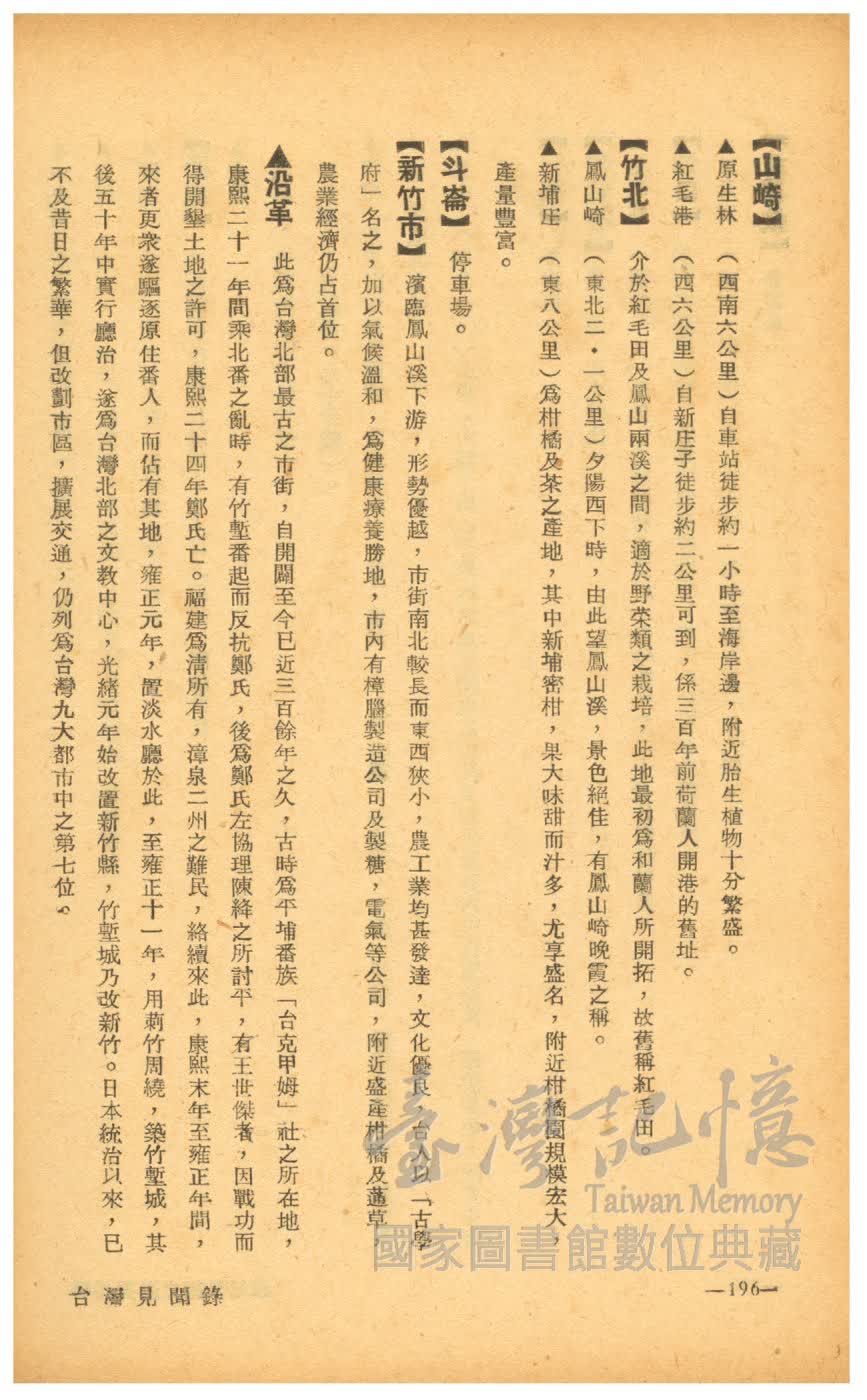 【山崎】
▲原生林　（西南六公里）自車站徒步約一小時至海岸邊，附近胎生植物十分繁盛。
▲紅毛港　（西六公里）自新庄子徒步約二公里可到，係三百年前荷蘭人開港的舊址。
【竹北】　介於紅毛田及鳳山兩溪之間，適於野菜類之栽培，此地最初為和蘭人所開拓，故舊稱紅毛田。
▲鳳山崎　（東北二・一公里）夕陽西下時，由此望鳳山溪，景色絕佳，有鳳山崎晚霞之稱。
▲新埔庄　（東八公里）為柑橘及茶之產地，其中新埔密柑，果大味甜而汁多，尤享盛名，附近柑橘園規模宏大，
產量豐富。
【斗崙】　停車場。
【新竹市】　濱臨鳳山溪下游，形勢優越，市街南北較長而東西狹小，農工業均甚發達，文化優良，台人以「古學
府」名之，加以氣候溫和，為健康療養勝地，市內有樟腦製造公司及製糖，電氣等公司，附近盛產柑橘及蓪草，
農業經濟仍占首位。
▲沿革　此為台灣北部最古之市街，自開闢至今已近三百餘年之久，古時為平埔番族「台克甲姆」社之所在地，
康熙二十一年間乘北番之亂時，有竹塹番起而反抗鄭氏，後為鄭氏左協理陳絳之所討平，有王世傑者，因戰功而
得開墾土地之許可，康熙二十四年鄭氏亡。福建為清所有，漳泉二州之難民，絡續來此，康熙末年至雍正年間，
來者更衆遂驅逐原住番人，而佔有其地，雍正元年，置淡水廳於此，至雍正十一年，用莿竹周繞，築竹塹城，其
後五十年中實行廳治，遂為台灣北部之文教中心，光緒元年始改置新竹縣，竹塹城乃改新竹。日本統治以來，已
不及昔日之繁華，但改劃市區，擴展交通，仍列為台灣九大都市中之第七位。
臺灣記憶
Taiwan Memory
國家圖書館數位典藏
台灣見聞錄
—196—